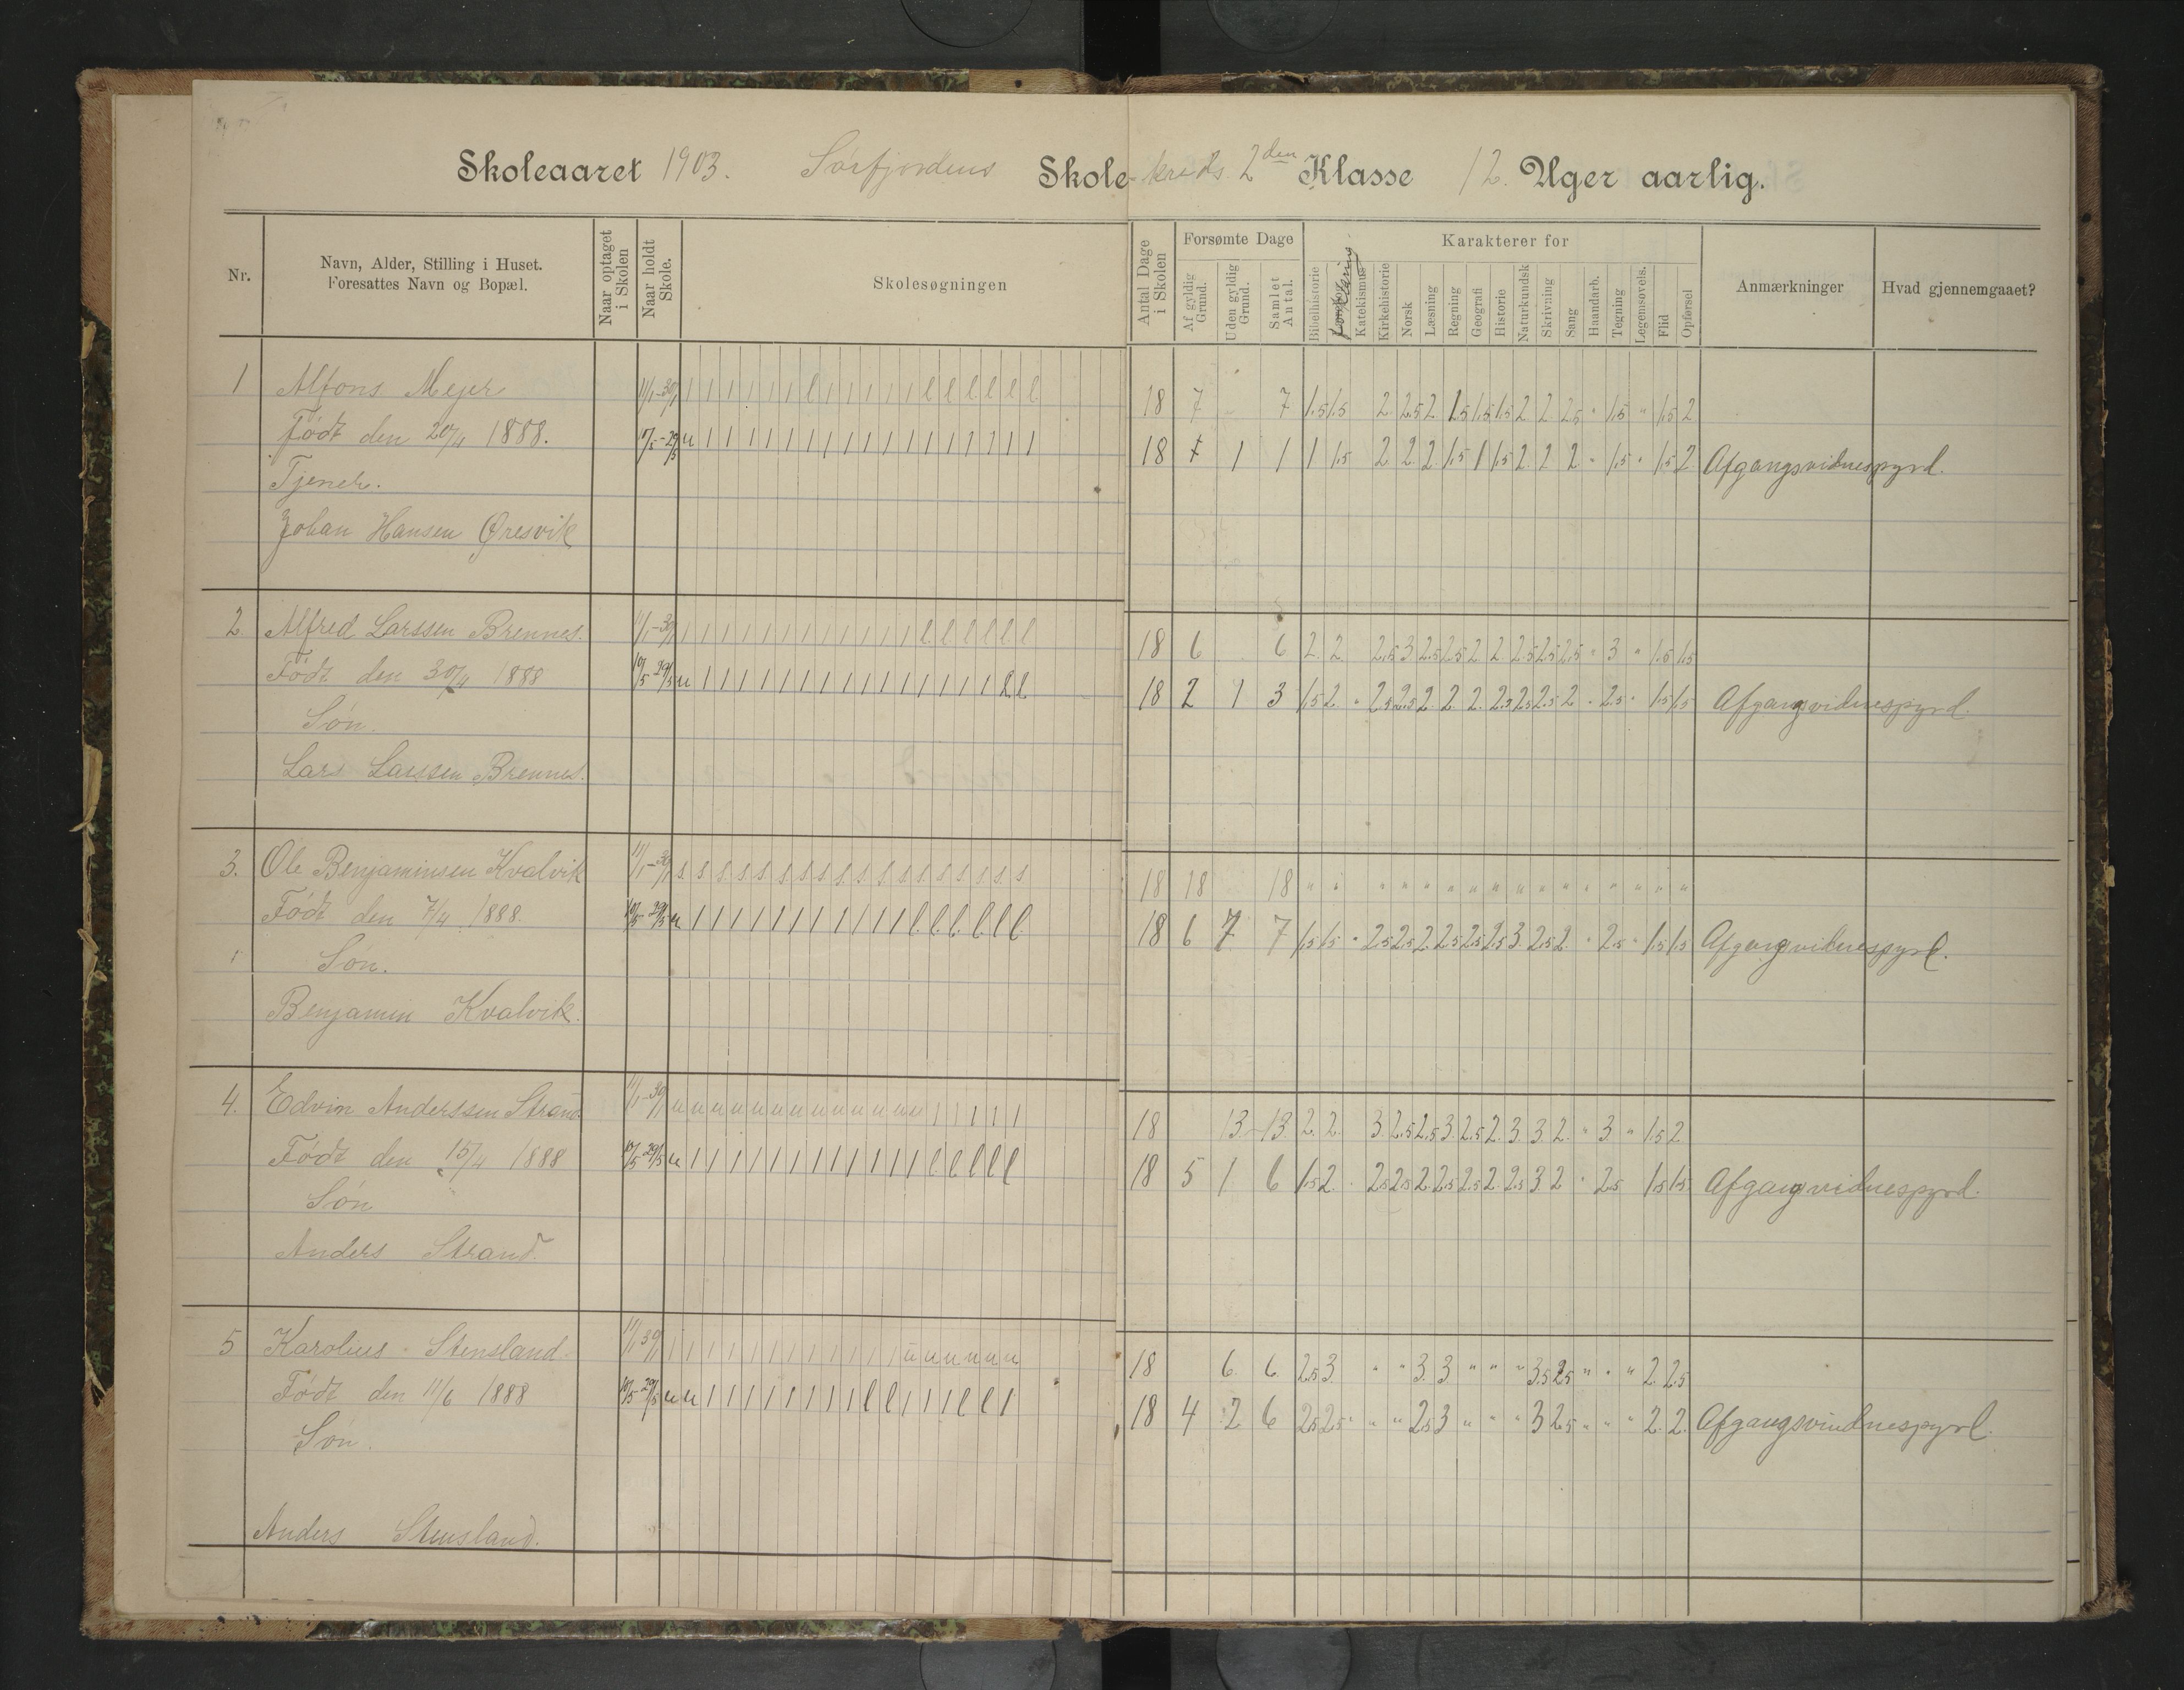 Skoleaaret 1903. Sörfjordens Skole-kreds. 2den Klasse 12. Uger aarlig.
Nr.
Navn, Alder, Stilling i Huset.
Foresattes Navn og Bopæl.
Naar optaget
i Skolen
Naar holdt
Skole.
Skolesøgningen
Antal Dage
i Skolen
Forsømte Dage
Af gyldig
Grund.
Uden gyldig
Grund.
Samlet
Antal.
Karakterer for
Bibelhistorie
Forklaring
Katekismus
Kirkehistorie
Norsk
Læsning
Regning
Geografi
Historie
Naturkundsk
Skrivning
Sang
Haandarb.
Tegning
Legemsøvels.
Flid
Opførsel
Anmærkninger
Hvad gjennemgaaet?
1 Alfons Mejer 11/1-30/1 l l l l l l l l l l l l l l l l l l 18 7 7 1.5 1.5 2 2.5 2 1.5 1.5 1.5 2 2 2.5 " 1.5 " 1.5 2
Født den 20/4 1888. 10/5-29/5 u l l l l l l l l l l l l l l l l l 18 1 1 1 1.5 2 2 2 1.5 1 1.5 2 2 2 " 1.5 " 1.5 2 Afgangsvidnespyrd.
Tjener.
Johan Hansen Øresvik
2 Alfred Larssen Brennes. 11/1-30/1 l l l l l l l l l l l l l l l l l l 18 6 6 2. 2 2.5 3 2.5 2.5 2 2 2.5 2.5 2.5 " 3 " 1.5 1.5
Født den 30/4 1888 10/5 29/5 u l l l l l l l l l l l l l l l l l 18 2 1 3 1.5 2 " 2.5 2.5 2 2 2 2.5 2.5 2.5 2 " 2.5 " 1.5 1.5 Afgangvidnespyrd.
Sön.
Lars Larssen Brennes.
3. Ole Benjaminsen Kvalvik 11/1-30/1 s s s s s s s s s s s s s s s s s s 18 18 18 " " " " " " " " " " " " " " " "
Født den 7/4 1888. 10/5 29/5 u l l l l l l l l l l l l l l l l l 18 6 7 7 1.5 1.5 " 2.5 2.5 2 2.5 2.5 2.5 3 2.5 2 " 2.5 " 1.5 1.5 Afgangvidnespyrd.
Sön.
Benjamin Kvalvik.
4. Edvin Anderssen Strand 11/1-30/1 u u u u u u u u u u u u u l l l l l 18 13 13 2. 2. 3 2.5 2.5 3 2.5 2 3 3 2 " 3 " 1.5 2
Født den 15/4 1888 10/5 29/5 u l l l l l l l l l l l l l l l l l 18 5 1 6 1.5 2 2.5 2.5 2 2.5 2.5 2 2.5 3 2 " 2.5 1.5 1.5 Afgangvidnespyrd.
Sön
Anders Strand.
5 Karolius Stensland. 11/1 30/1 l l l l l l l l l l l l u u u u u u 18 6 6 2.5 3 " " 3 3 " " " 3.5 2.5 " " " 2 2.5
Født den 11/6 1888 10/5 29/5 u u l l l l l l l l l l l l l l l l 18 4 2 6 2.5 2.5 " " " 2.5 3 " " " 3 2.5 " " " 2. 2. Afgangsvindnespyrd.
Sön.
Anders Stensland.